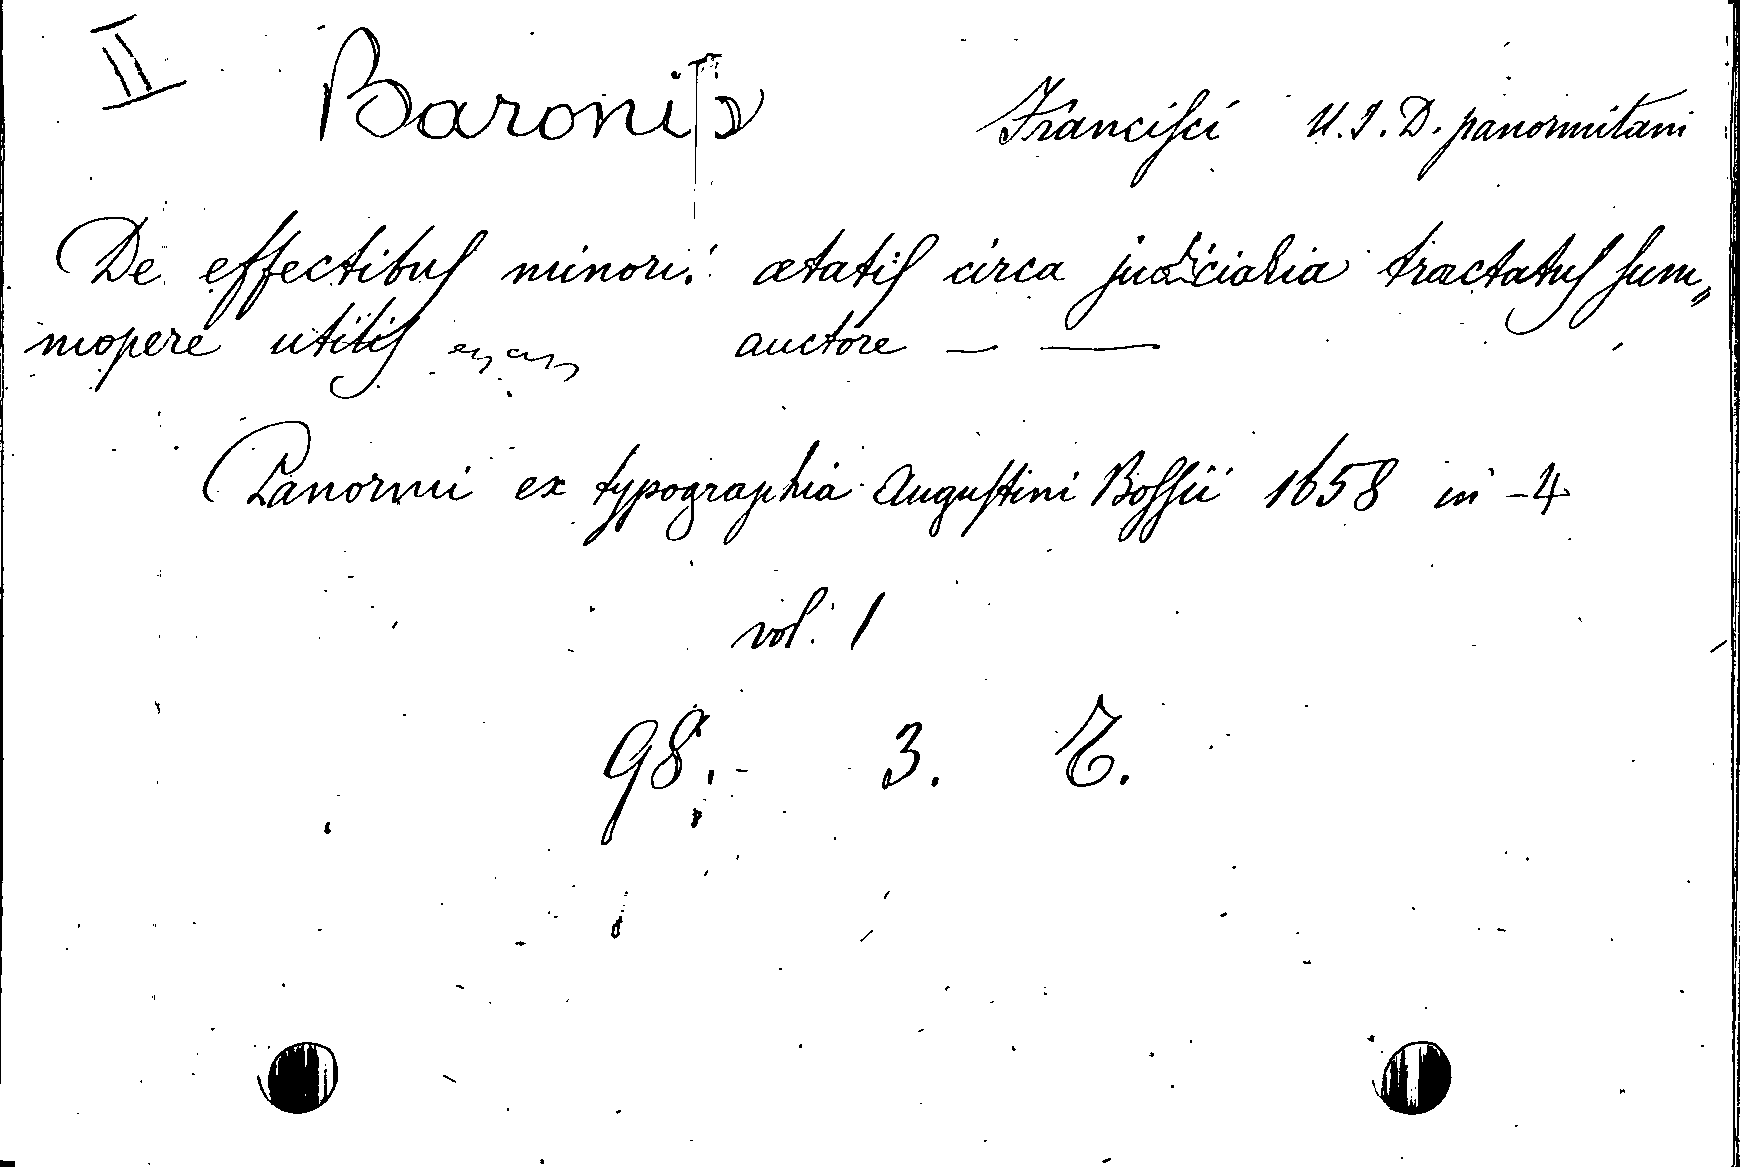 II Baronis Francisci U. I. D. panormitani
De effectibus minori: ætatis circa judicialia tractatus sum„
mopere utilis auctore — —
Panormi ex typographia Augustini Bossii 1658 in -4
vol. 1
98. - 3. C.